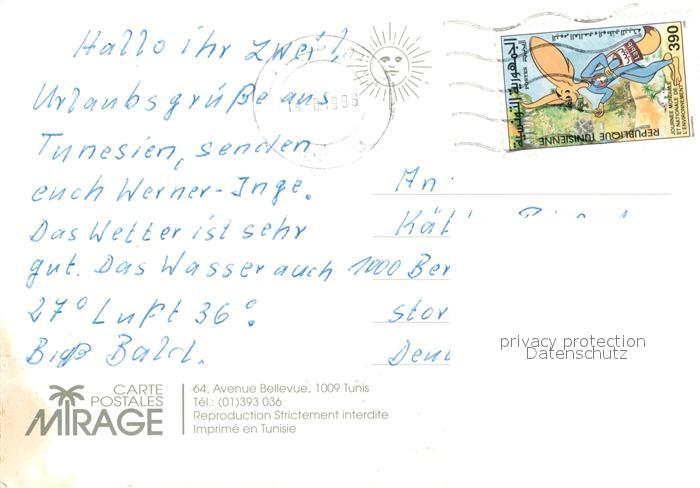 Hallo ihr zwei!
Urlaubsgrüße aus
Tunesien, senden
euch Werner-Inge.
Das Wetter ist sehr
gut. Das Wasser auch
27° Luft 36°.
Biß Bald.
An:
1000 Ber
Deu
390
الجمهورية التونسية
REPUBLIQUE TUNISIENNE
JOURNEE MONDIALE
ET NATIONALE DE
L'ENVIRONNEMENT
privacy protection
Datenschutz
CARTE
POSTALES
MIRAGE
64, Avenue Bellevue, 1009 Tunis
Tél.: (01)393 036
Reproduction Strictement interdite
Imprimé en Tunisie